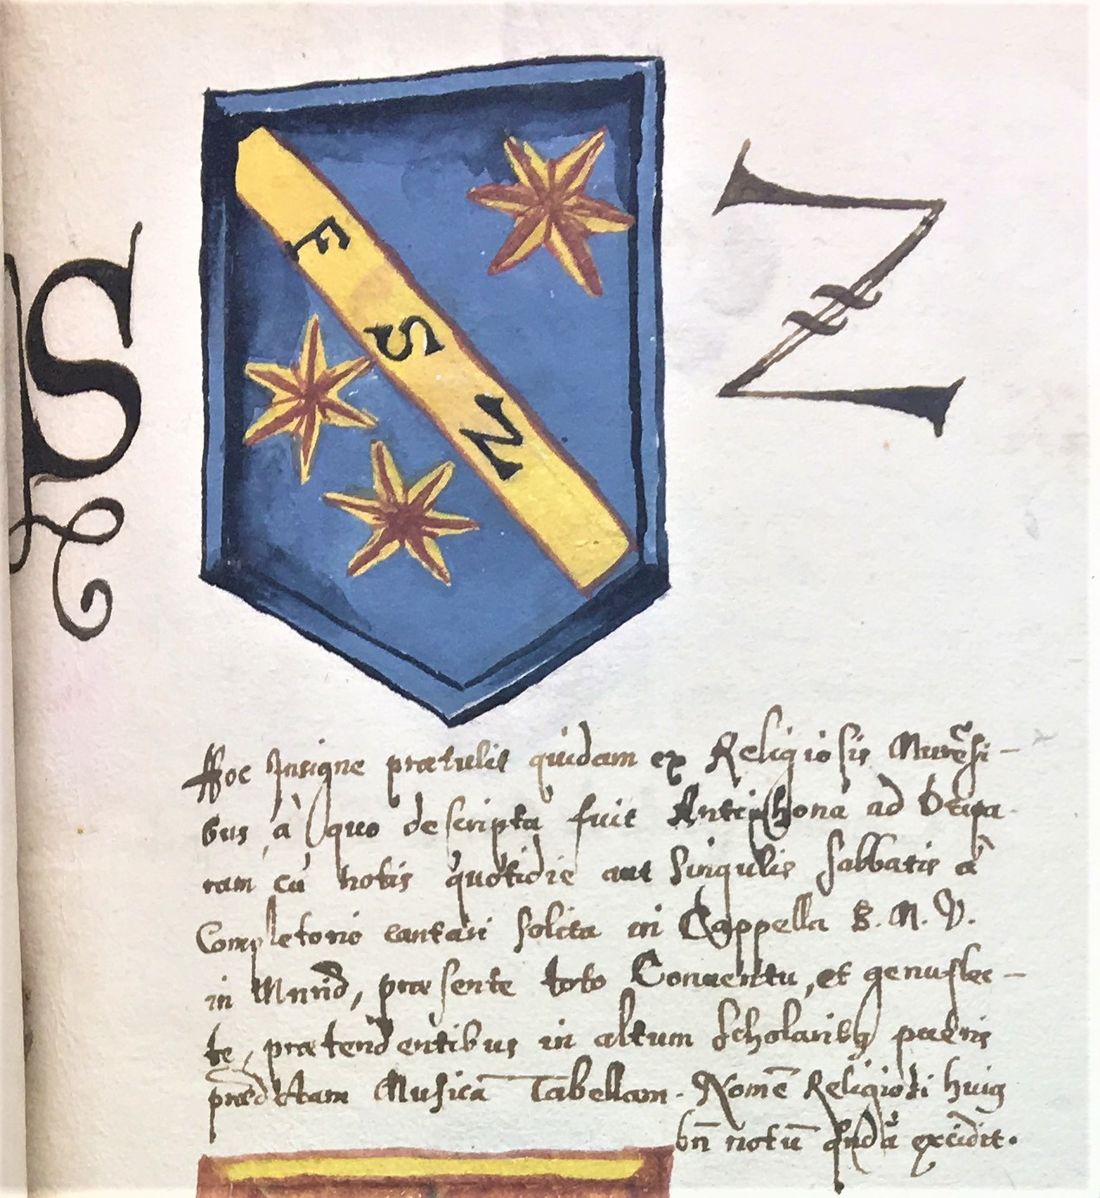 S
Z
F
S
Z
Hoc Insigne prætulit quidam ex Religiosis Murẽsi-
bus, à quo descripta fuit Antiphona ad
ram, cũ notis quotidie aut singulis sabbatis à
Completorio cantari solita in Cappella B. M. V.
in, præsente toto Conuentu, et genuflec-
te, prætendentibus in altum Scholaribꝫ pueris
Musicã Tabellam. Nomẽ Religiosi huiꝰ
notũ excidit.